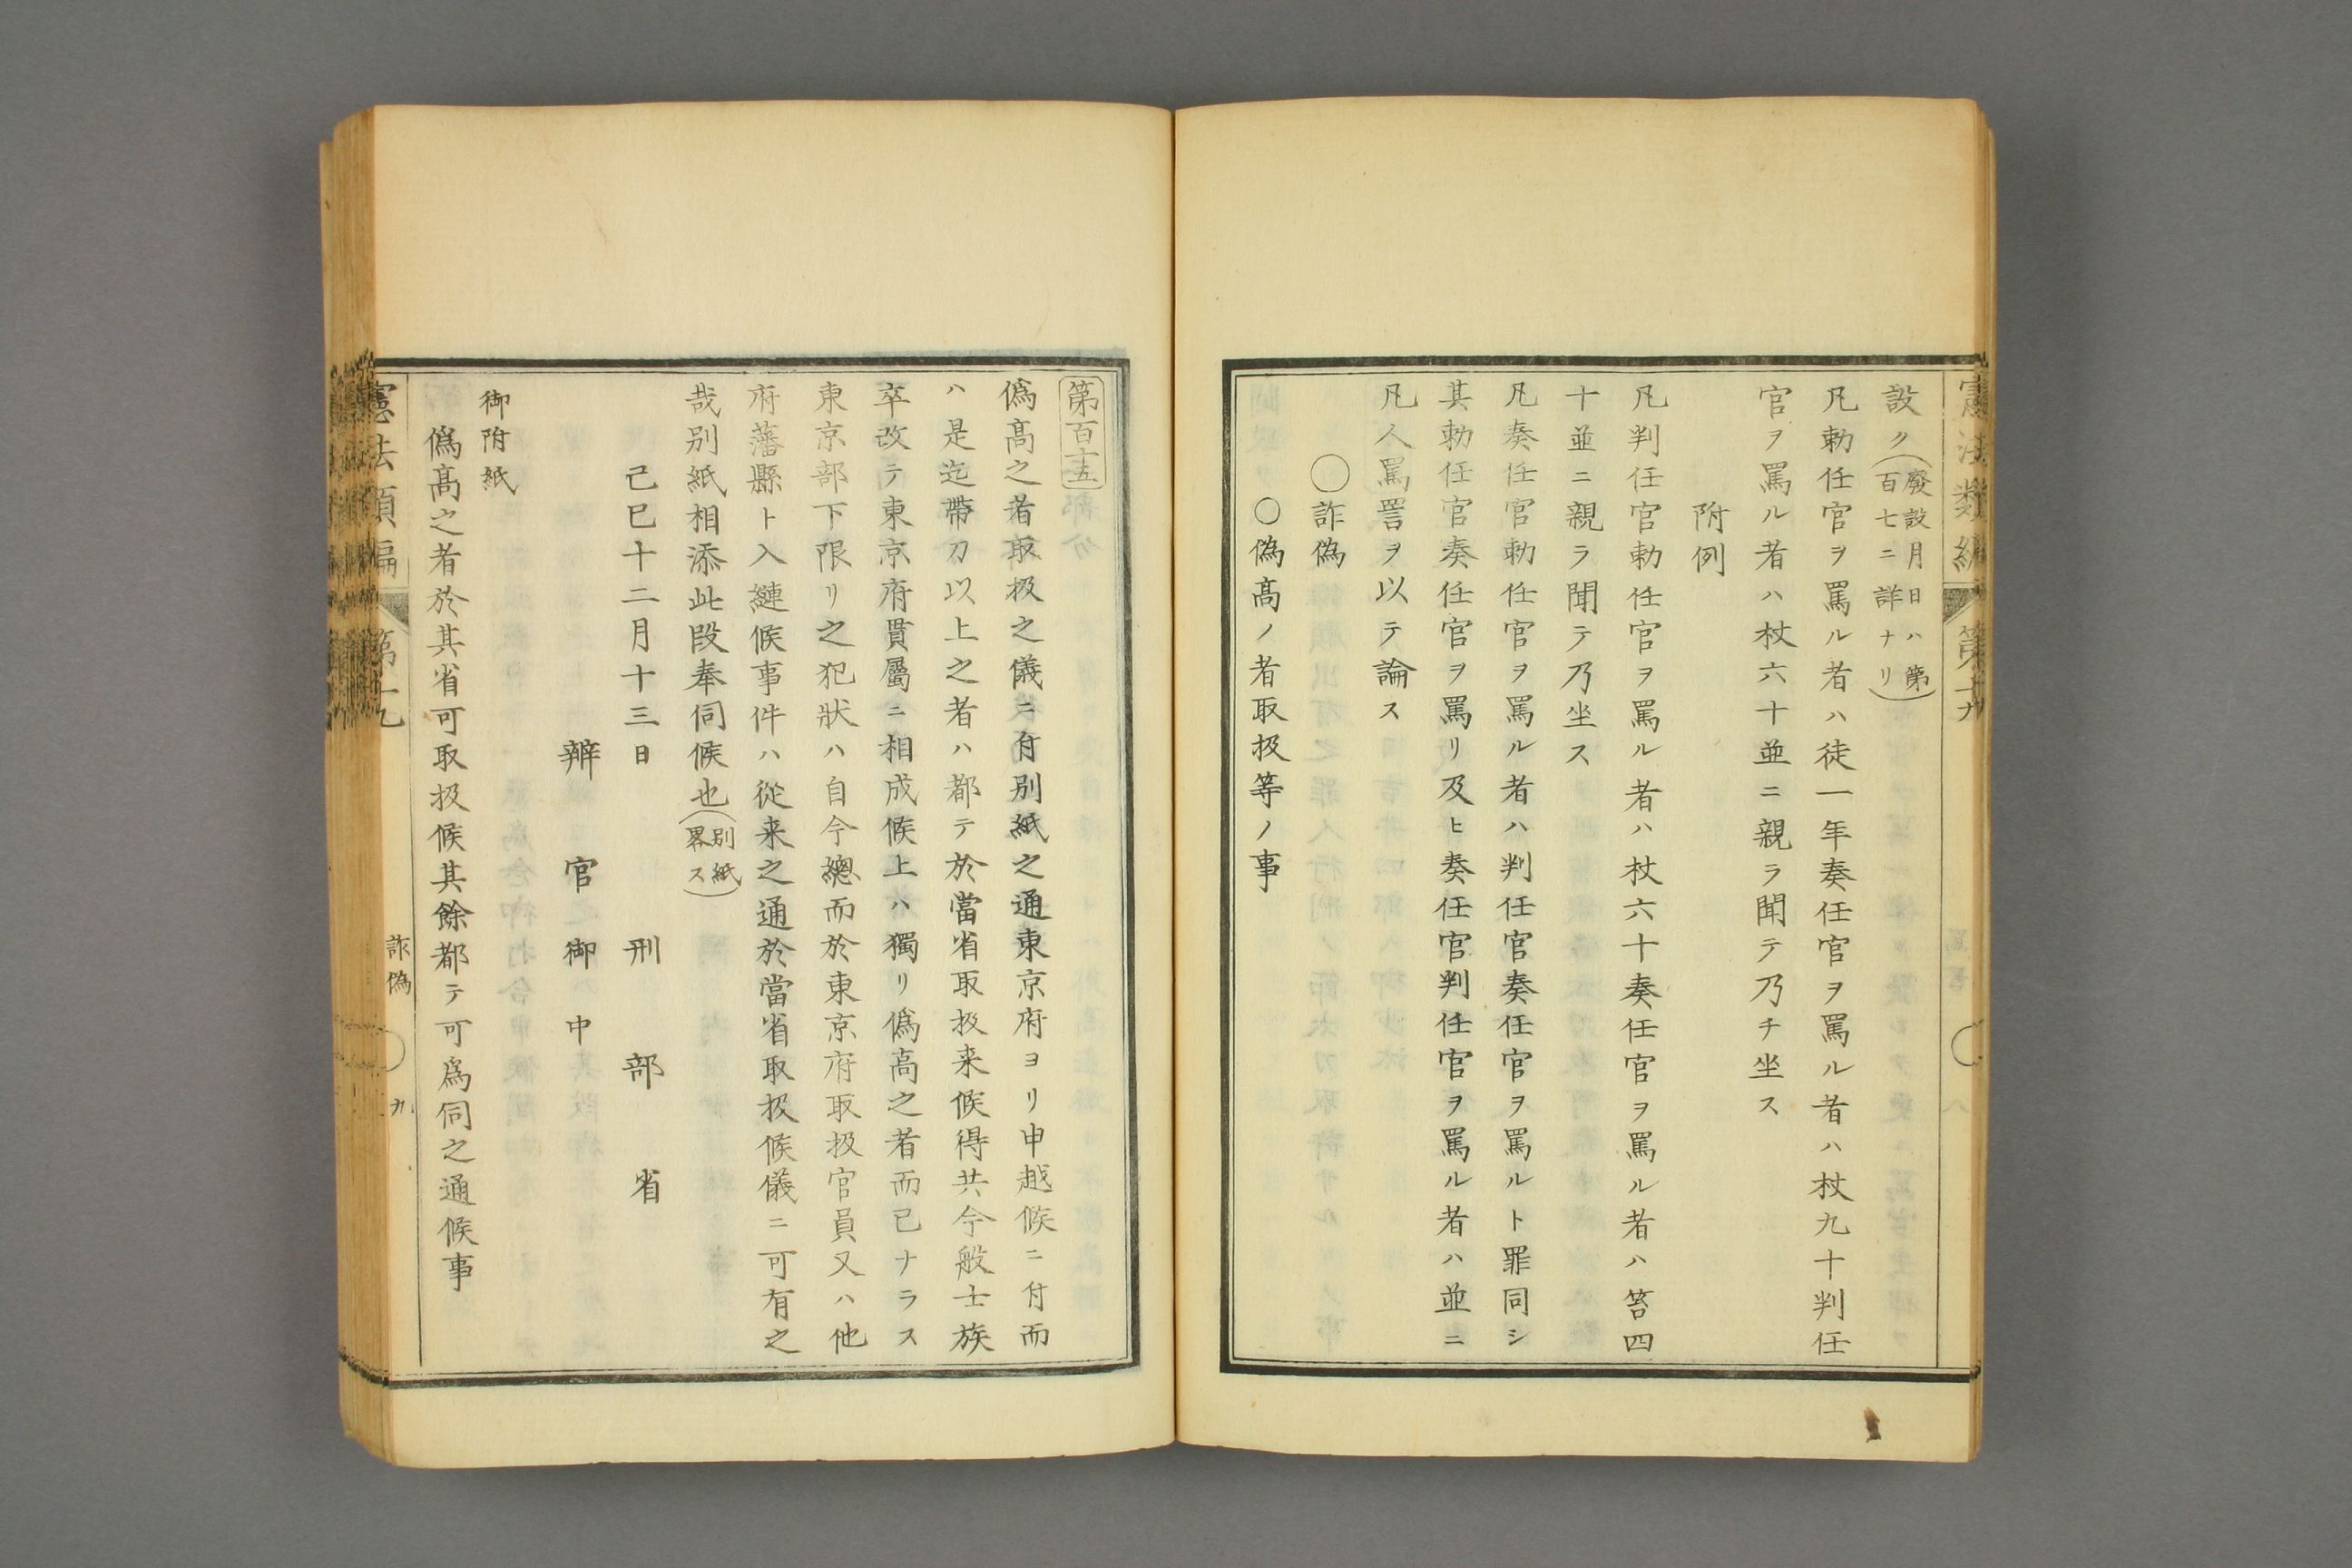 憲法類編　第十九
設ク（廢設月日ハ第
百七ニ詳ナリ）
凡勅任官ヲ罵ル者ハ徒一年奏任官ヲ罵ル者ハ杖九十判任
官ヲ罵ル者ハ杖六十並ニ親ラ聞テ乃チ坐ス
附例
凡判任官勅任官ヲ罵ル者ハ杖六十奏任官ヲ罵ル者ハ笞四
十並ニ親ラ聞テ乃坐ス
凡奏任官勅任官ヲ罵ル者ハ判任官奏任官ヲ罵ルト罪同シ
其勅任官奏任官ヲ罵リ及ヒ奏任官判任官ヲ罵ル者ハ並ニ
凡人罵詈ヲ以テ論ス
〇詐偽
〇偽高ノ者取扱等ノ事
第百十五
偽高之者取扱之儀ニ付別紙之通東京府ヨリ申越候ニ付而
ハ是迄帶刀以上之者ハ都テ於當省取扱来候得共今般士族
卒改テ東京府貫屬ニ相成候上ハ獨リ偽高之者而已ナラス
東京部下限リ之犯狀ハ自今總而於東京府取扱官員又ハ他
府藩縣ト入縺候事件ハ從来之通於當省取扱候儀ニ可有之
哉別紙相添此段奉伺候也（別紙
畧ス）
己巳十二月十三日　刑部省
辨官御中
御附紙
偽高之者於其省可取扱候其餘都テ可爲伺之通候事
憲法類編　第十九　詐偽　九